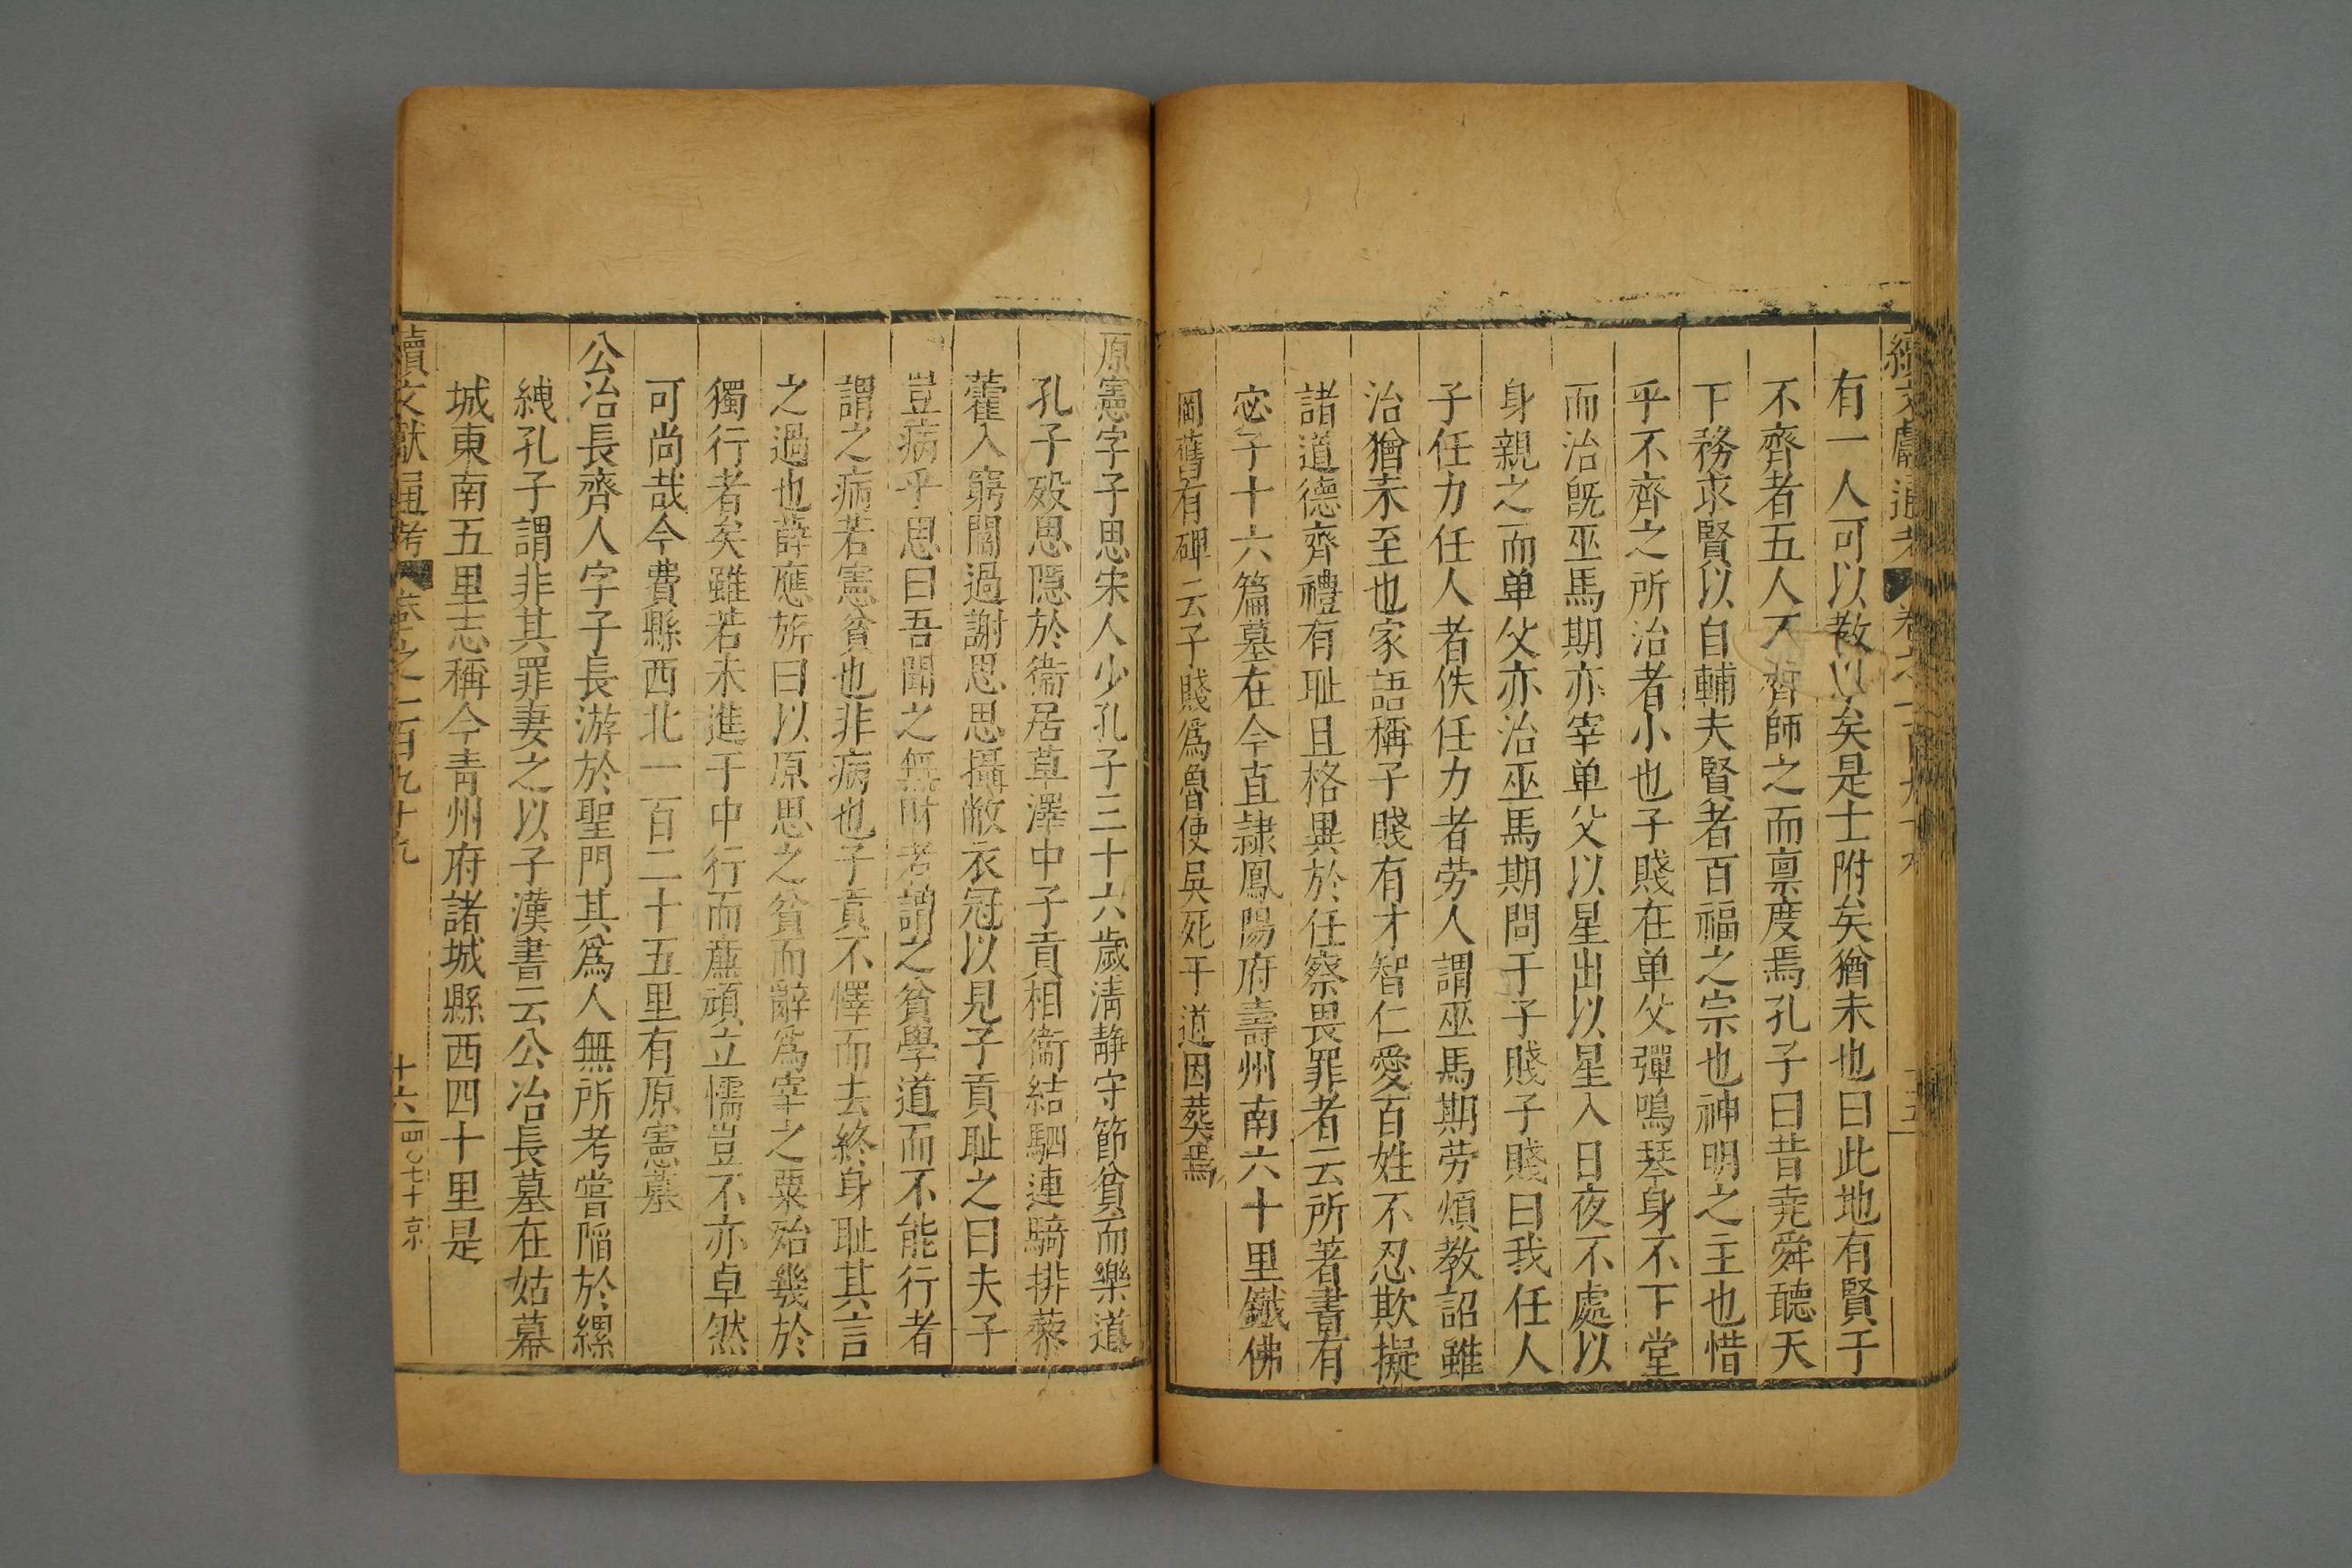 續文獻通考 卷之一百九十九 十五
有一人可以教以矣是士附矣猶未也曰此地有賢于
不齊者五人不齊師之而禀度焉孔子曰昔堯舜聽天
下務求賢以自輔夫賢者百福之宗也神明之主也惜
乎不齊之所治者小也子賤在单父彈鳴琴身不下堂
而治旣巫馬期亦宰单父以星出以星入日夜不處以
身親之而单父亦治巫馬期問于子賤子賤曰我任人
子任力任人者佚任力者劳人謂巫馬期劳煩教詔雖
治猶未至也家語稱子賤有才智仁愛百姓不忍欺擬
諸道德齊禮有耻且格異於任察畏罪者云所著書有
宓子十六篇墓在今直隷鳳陽府壽州南六十里鐵佛
岡舊有碑云子賤爲魯使吳死于道因葬焉
原憲字子思宋人少孔子三十六歲清静守節貧而樂道
孔子殁思隱於衞居草澤中子貢相衞結駟連騎排藜
藿入窮閻過謝思思攝敝衣冠以見子貢耻之曰夫子
豈病乎思曰吾聞之無財者謂之貧學道而不能行者
謂之病若憲貧也非病也子貢不懌而去終身耻其言
之過也薛應旂曰以原思之貧而辭爲宰之粟殆幾於
獨行者矣雖若未進于中行而亷頑立懦豈不亦卓然
可尚哉今費縣西北一百二十五里有原憲墓
公冶長齊人字子長游於聖門其爲人無所考嘗陷於縲
絏孔子謂非其罪妻之以子漢書云公冶長墓在姑幕
城東南五里志稱今青州府諸城縣西四十里是
續文獻通考 卷之一百九十九 十六 四〇七十京